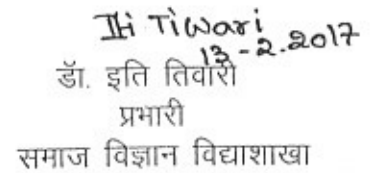 Iti Tiwari
13-2.2017
डॉ. इति तिवारी
प्रभारी
समाज विज्ञान विद्याशाखा